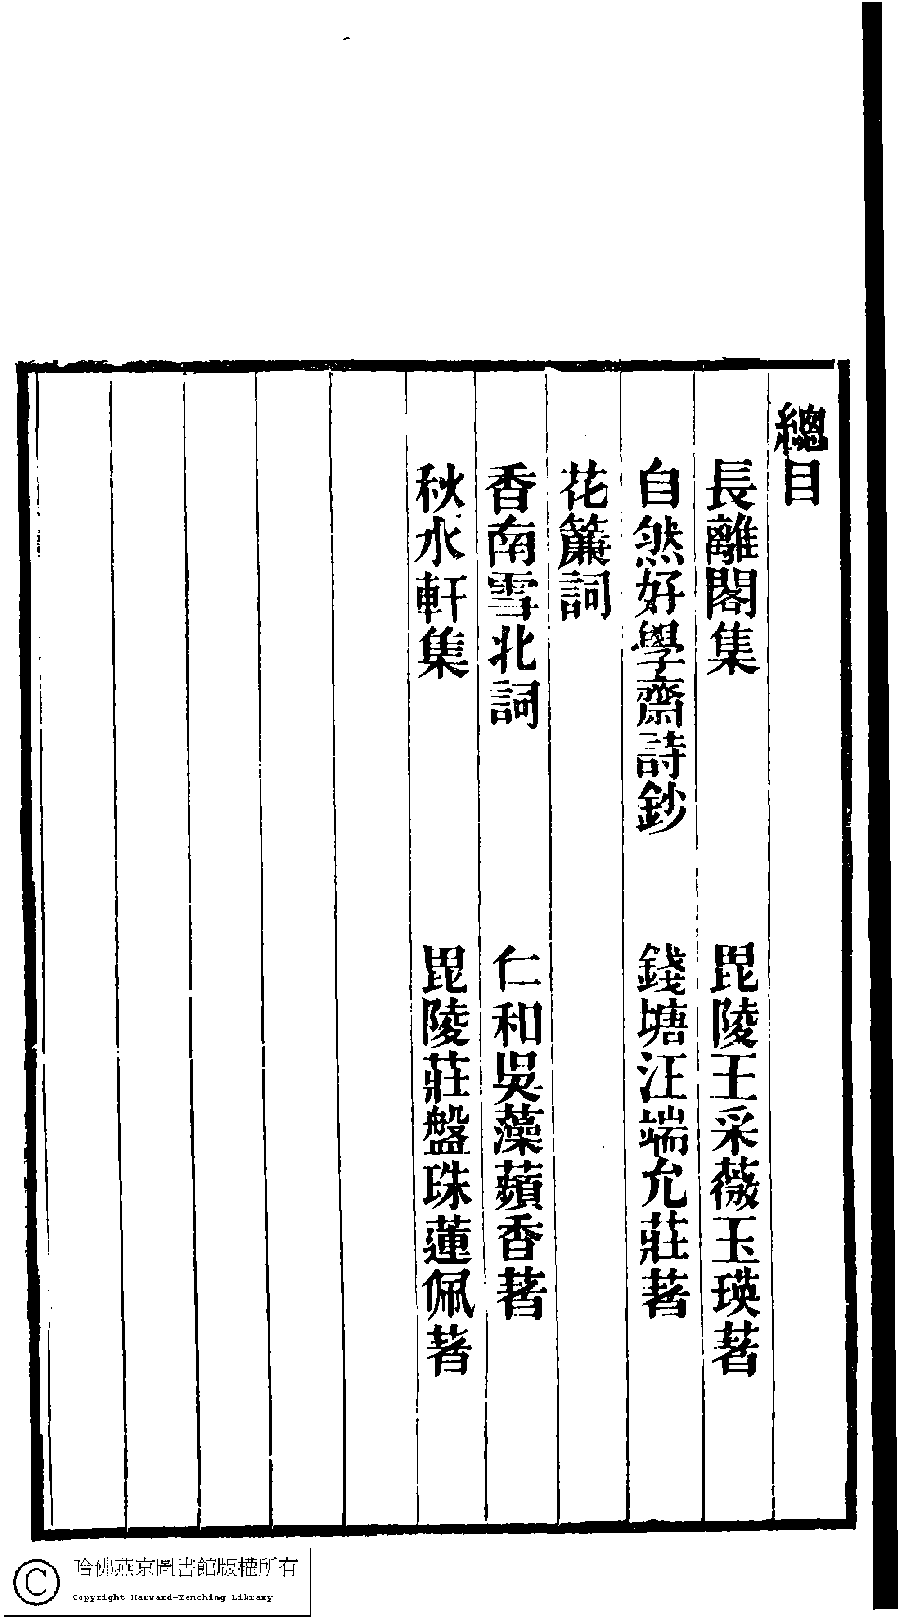 總目
長離閣集 毘陵王采薇玉瑛著
自然好學齋詩鈔 錢塘汪端允莊著
花簾詞
香南雪北詞 仁和吳藻蘋香著
秋水軒集 毘陵莊盤珠蓮佩著
哈佛燕京圖書館版權所有
Copyright Harvard-Yenching Library